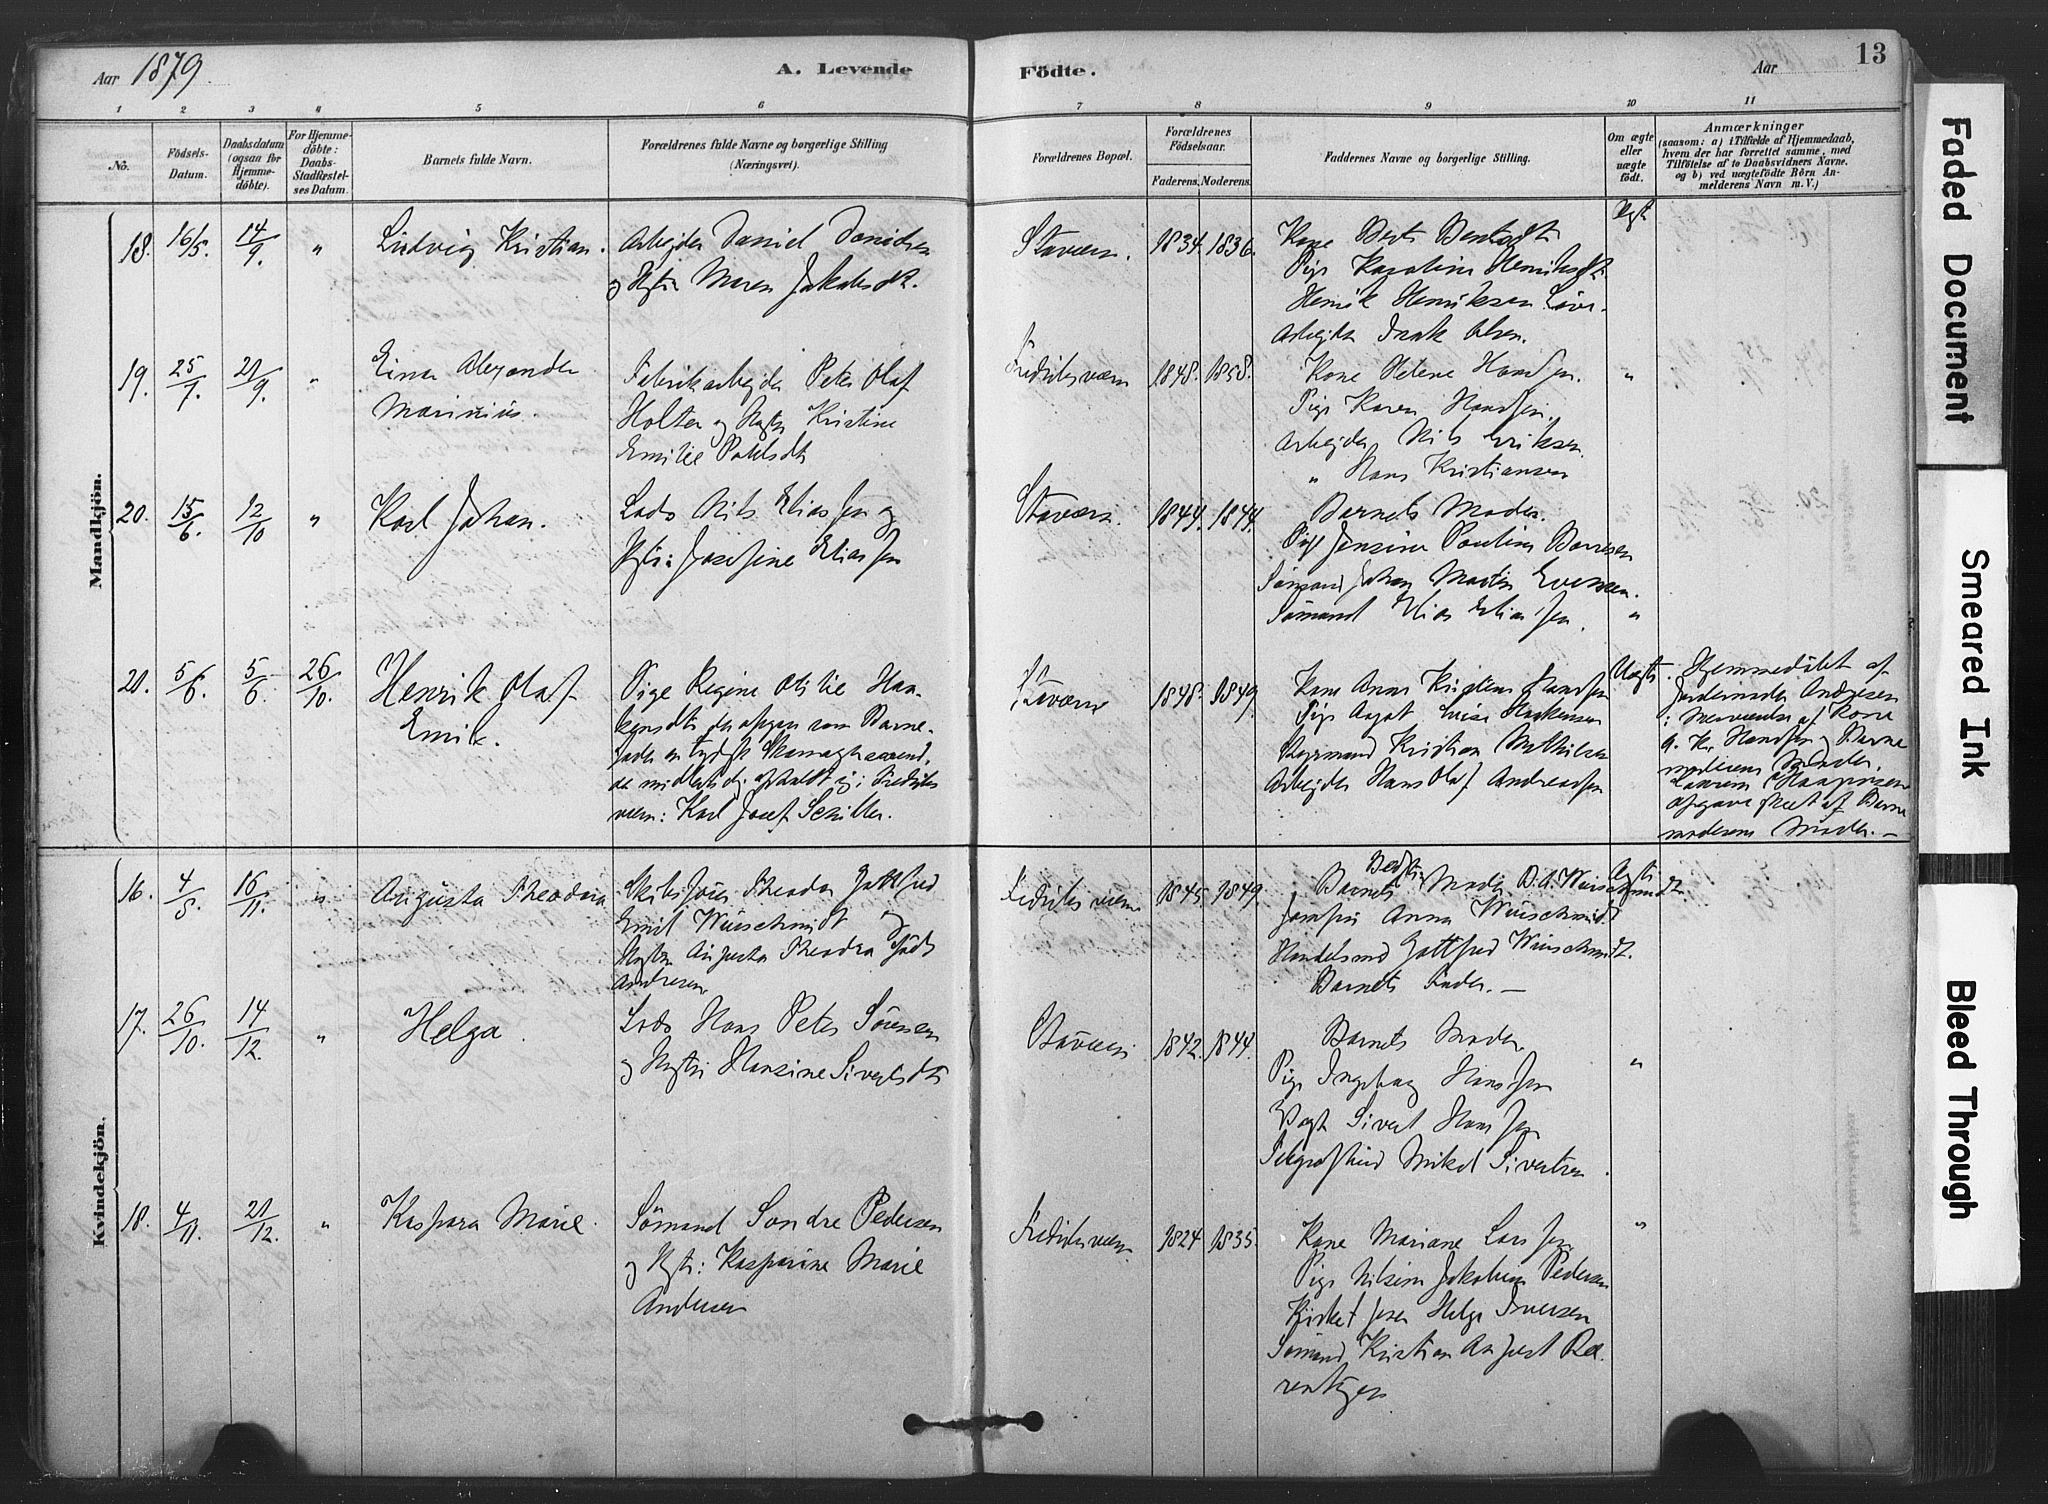 Aar 1879
A. Levende
Födte.
Aar
13
1 2 3 4 5 6 7 8 9 10 11
No.
Födsels-
Datum.
Daabsdatum
(ogsaa for
Hjemme-
döbte).
For Hjemme-
döbte:
Daabs-
Stadfæstel-
ses Datum.
Barnets fulde Navn.
Forældrenes fulde Navne og borgerlige Stilling
(Næringsvei).
Forældrenes Bopæl.
Forældrenes
Födselsaar.
Faderens. Moderens.
Faddernes Navne og borgerlige Stilling.
Om ægte
eller
uægte
födt.
Anmærkninger
(saasom: a) i Tilfælde af Hjemmedaab,
hvem der har forrettet samme, med
Tilföielse af to Daabsvidners Navne.
og b) ved uægtefödte Börn An-
melderens Navn m. V.)
Mandkjön.
18. 16/5. 14/9. " Ludvig Kristian.
Arbejder Daniel
og Hustru Maren Jakobsdt.
Staværn. 1834. 1836.
Kone Berte Bentsdt
Pige Karoline Henriksdt.
Henrik Henriksen
Arbejder Isak Olsen.
Ægte
19. 25/7. 21/9. " Einar Alexander
Marinius.
Fabrikarbejder Peter Olaf
Holter og Hustru Kristine
Emilie
Fredriksværn 1848. 1858.
Kone Helene Hansen.
Pige Karen Hansen.
Arbejder Nils Eriksen
" Hans Kristiansen
"
20. 15/6. 12/10 " Karl Johan.
Lods Nils Eliassen og
Hustru: Josefine Eliassen
Staværn. 1844. 1844.
Barnets Moder.
Pige Jensine Pauline
Sömand Johan Martin Evensen.
Sömand Elias Eliassen.
"
21. 5/6. 5/6. 26/10. Henrik Olaf
Emil.
Pige Regine Otilie Haa-
kensdt. der opgav som Barne-
fader en tydsk Skomagersvend,
der midlertidig opholdt sig i Fredriks
værn: Karl Josef Schiller.
Staværn 1848. 1849.
Kone Anne Kristine Hansen
Pige Luise Haakensen
Styrmand Kristian Mathisen
Arbejder Hans Olaf Andreassen
Uægte. Hjemmedöbt af
Jordemoder Andresen
i Nærværelse af Kone
A. K. Hansen og Barne
moderens Moder.
opgave skeet af Barne
moderens Moder. —
Kvindekjön.
16. 4/5. 16/11. " Augusta Theodora
Theodor Gottfred
Emil Würschmidt og
Hustru Augusta Theodora född
Andresen
Fredriksværn 1845. 1849.
Barnets Bedstemoder D. A. Würschmidt.
Jomfru Anna Würschmidt
Handelsmd Gottfred Würschmidt.
Barnets Fader. —
Ægte
17. 26/10. 14/12. " Helga.
Lods Hans Peter Sörensen
og Hustru Hansine Sivertsdt
Staværn 1842. 1844.
Barnets Moder
Pige Ingeborg Hansen
Vagt Sivert Hansen
Mikal Sivertsen.
"
18. 4/11. 21/12. " Kaspara Marie.
Sömand Sondre Pedersen
og Hustr: Kasparine Marie
Andersen
Fredriksværn 1824 1835.
Kone Mariane Larsen
Pige Nilsine Jakobine Pedersen
Helge Iversen
Sömand Kristian August Be-
rentzen
"
Faded Document
Smeared Ink
Bleed Through